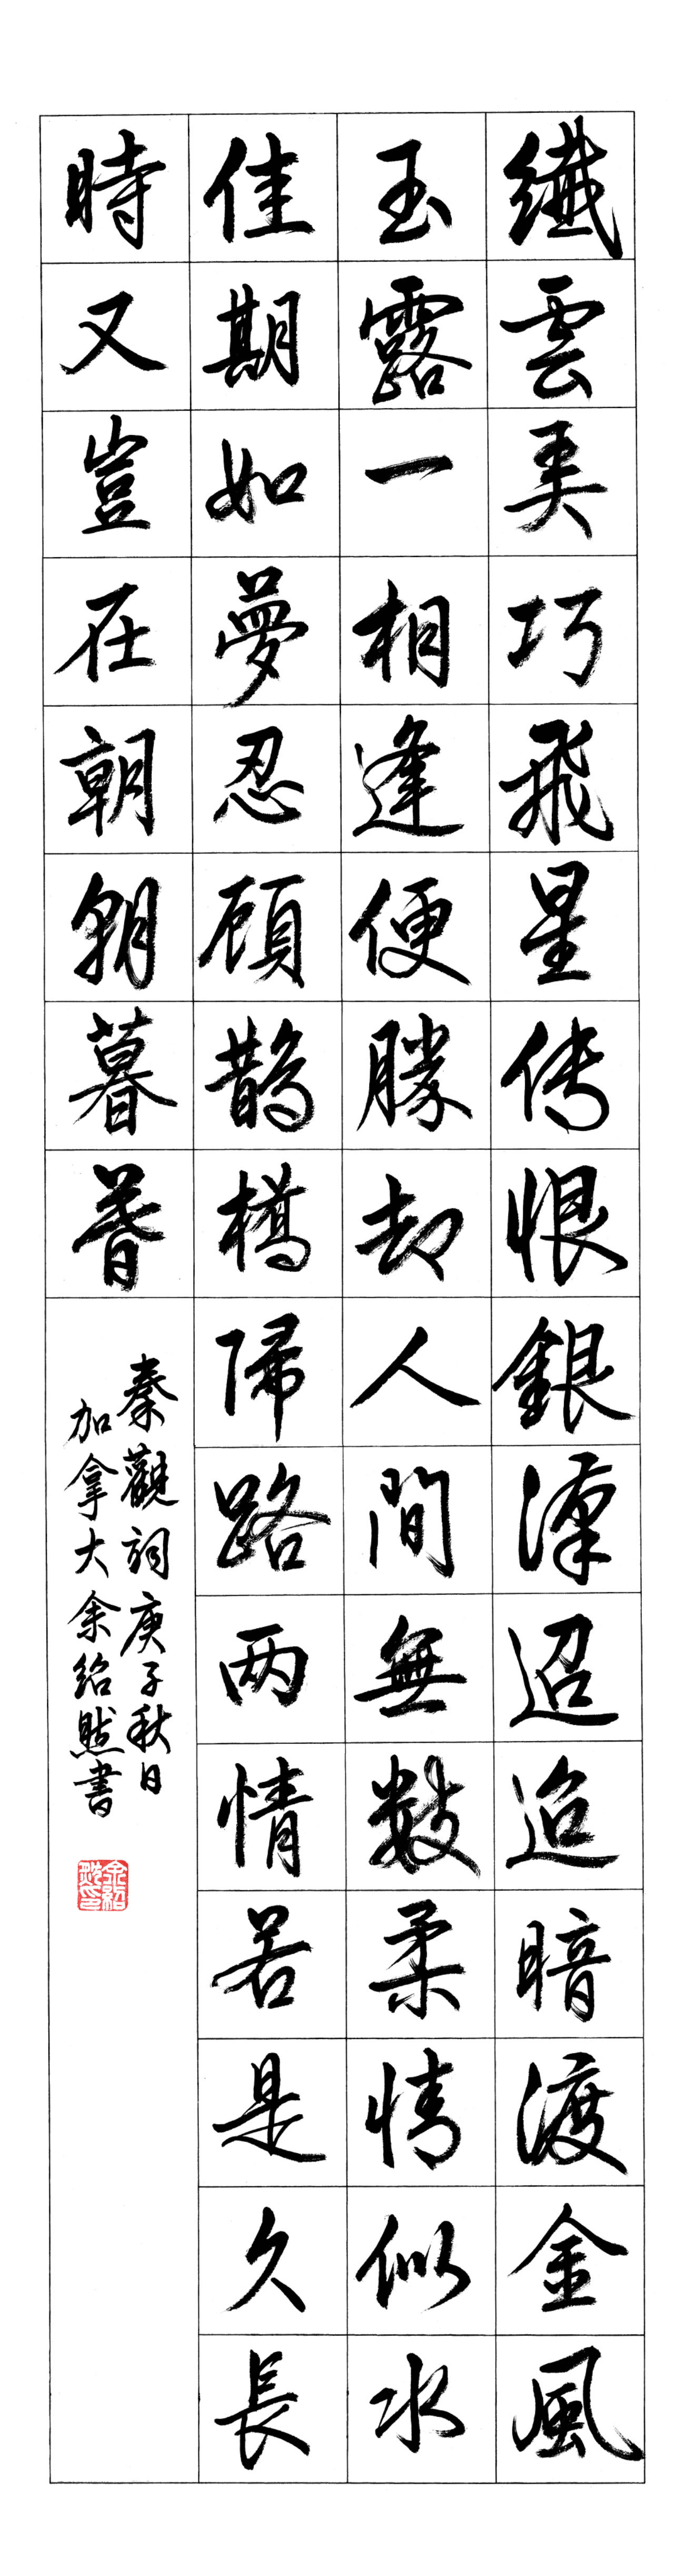 纖雲弄巧飛星传恨銀漢迢迢暗渡金風
玉露一相逢便勝却人間無數柔情似水
佳期如夢忍顧鵲橋歸路两情若是久長
時又豈在朝朝暮暮
秦觀詞庚子秋日
加拿大余紹然書